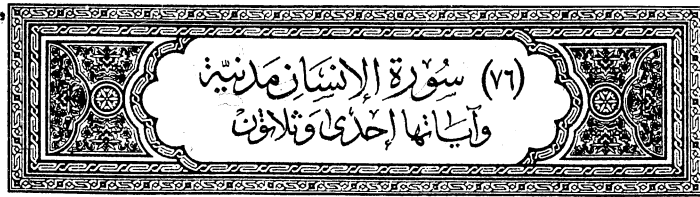 (٧٦) سُورَةِ الإِنسَانِ مَدَنِيَّة
وَآيَاتُهَا إِحْدَى وَثَلَاثُونَ